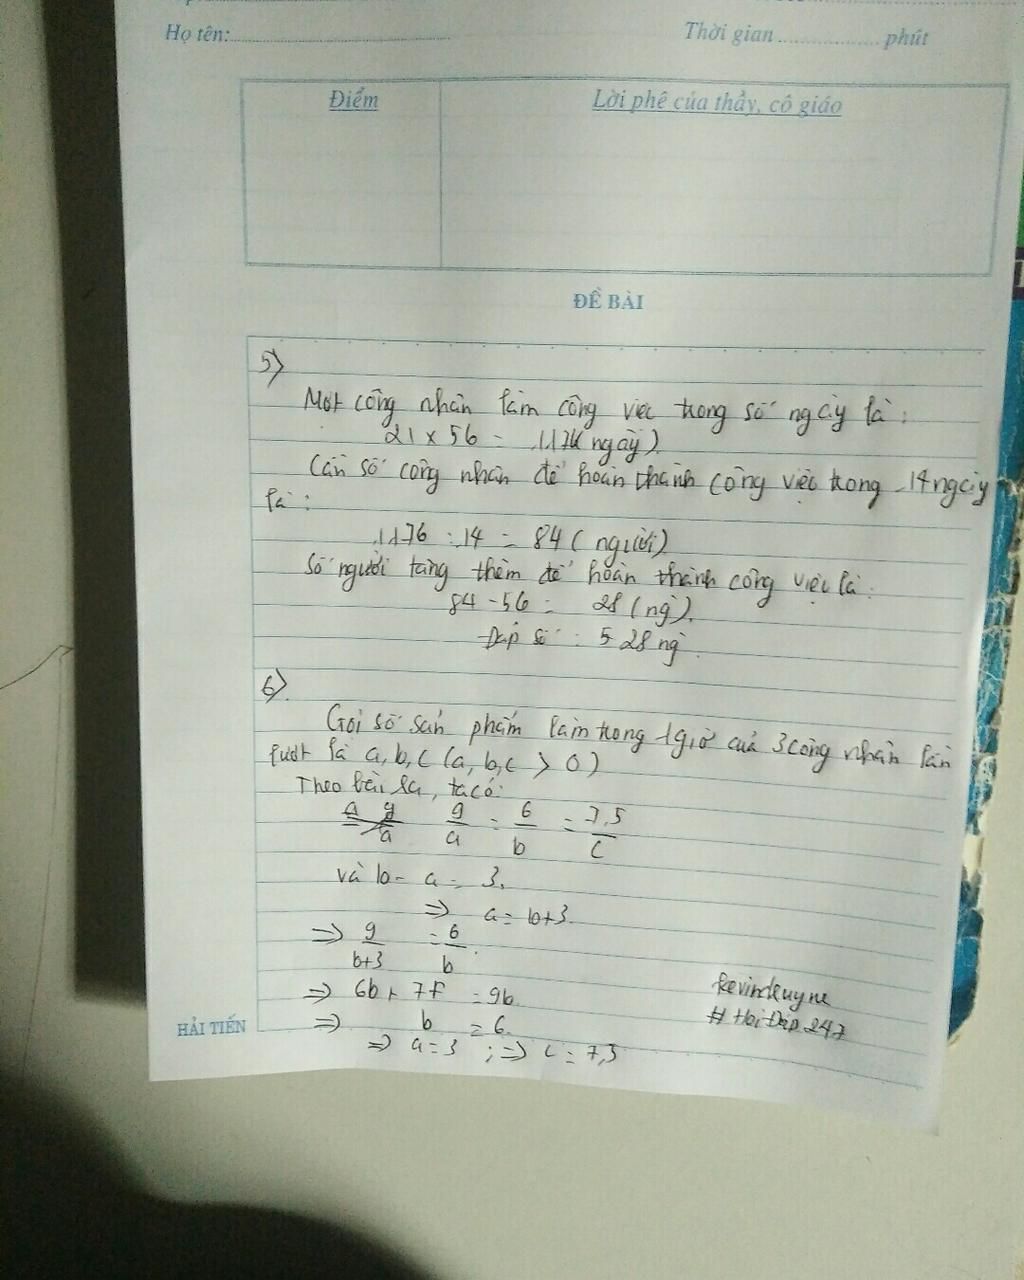 Họ tên:
Thời gian ................. phút
Điểm
Lời phê của thầy, cô giáo
ĐỀ BÀI
5)
Một công nhân làm công việc trong số ngày là:
21 x 56 = 1176 (ngày)
Cần số công nhân để hoàn thành công việc trong 14 ngày
là:
1176 : 14 = 84 (người)
Số người tăng thêm để hoàn thành công việc là:
84 - 56 = 28 (ng)
Đáp số : 28 ng
6)
Gọi số sản phẩm làm trong 1 giờ của 3 công nhân lần
lượt là a, b, c (a, b, c > 0)
Theo bài ra, ta có:
9/a = 6/b = 7,5/c
và b - a = 3.
=> a = b+3.
=> 9/b+3 = 6/b
=> 6b + = 9b
=> b = 6.
=> a = 3 ; => c = 7,5
#HoiDap247
HẢI TIẾN